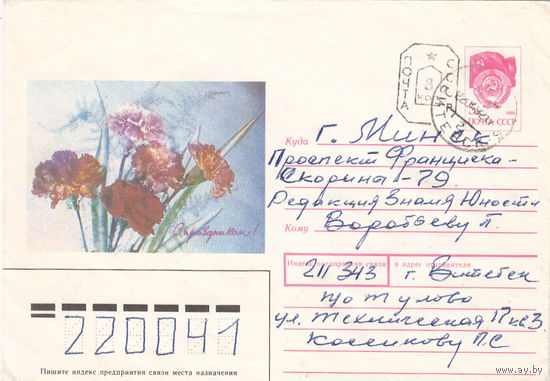 ПОЧТА
ПОЧТА СССР
Куда
г. Минск
Проспект Франциска-
Скорины - 79
Редакция Знамя Юности
Кому
Воробьеву П.
С праздником!
Индекс предприятия связи и адрес отправителя
211343 г. Витебск
п/о Тулово
ул. Техническая 17 кв 3
Косенкову П.С
220041
Пишите индекс предприятия связи места назначения
www.ay.by